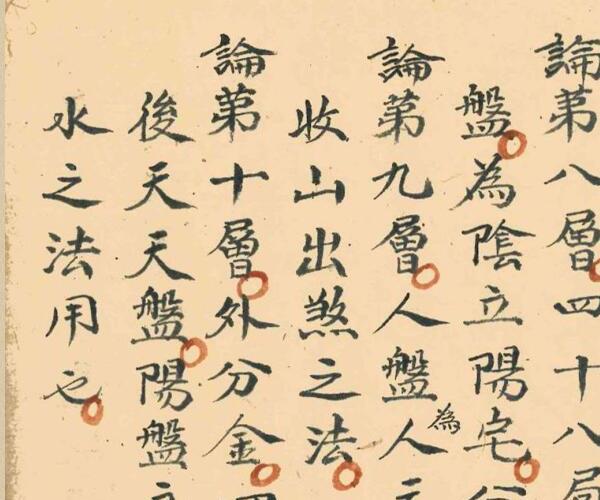 論第八層四十八局
盤為陰立陽宅分
論第九層人盤人為
收山出煞之法
論第十層外分金
後天天盤陽盤
水之法用也